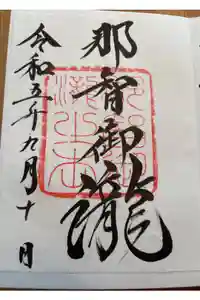 那智御瀧
令和五年九月十日